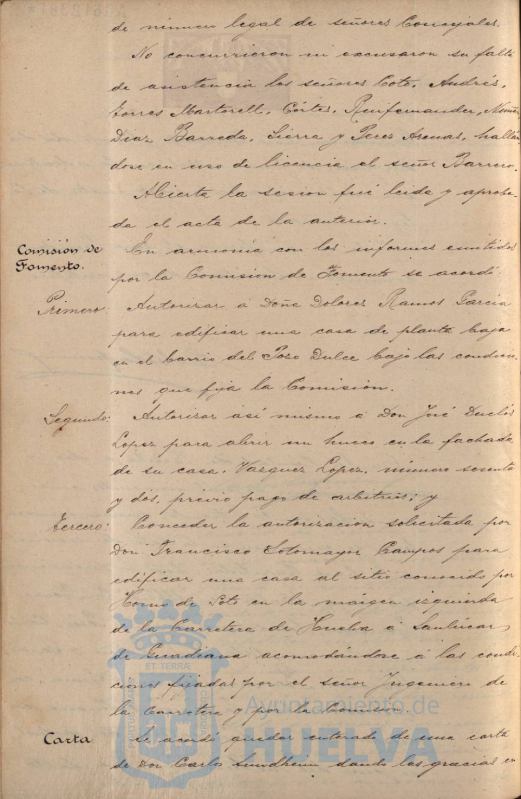 de número legal de señores Concejales.
No concurrieron ni excusaron su falta
de asistencia los señores Coto, Andrés,
Torres Martorell, Córtes, Muñoz,
Diaz Barreda, Sierra y Peces Arenas, hallan
dose en uso de licencia el señor Barrero.
Abierta la sesion fué leida y aproba-
da el acta de la anterior.
Comisión de Fomento.
En armonía con los informes emitidos
por la Comision de Fomento se acordó:
Primero: Autorizar á Doña Dolores Ramos Garcia
para edificar una casa de planta baja
en el barrio del Pozo Dulce bajo las condicio-
nes que fija la Comision.
Segundo: Autorizar así mismo á Don José Duclós
Lopez para abrir un hueco en la fachada
de su casa, Vazquez Lopez, número sesenta
y dos, previo pago de arbitrios; y
Tercero: Conceder la autorizacion solicitada por
Don Francisco Sotomayor Campos para
edificar una casa al sitio conocido por
Horno de Poto en la márgen izquierda
de la Carretera de Huelva á Sanlúcar
de Guadiana acomodándose á las condi-
ciones fijadas por el señor Ingeniero de
la Carretera y por la Comision.
Carta
Se acordó quedar enterado de una carta
de Don Carlos Sundheim dando las gracias en
Ayuntamiento de
HUELVA